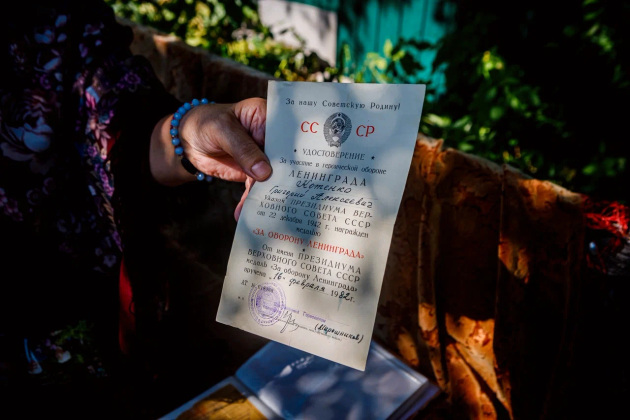 За нашу Советскую Родину!
СС СР
УДОСТОВЕРЕНИЕ
За участие в героической обороне
ЛЕНИНГРАДА
Котенко
Григорий Алексеевич
Указом ПРЕЗИДИУМА ВЕР-
ХОВНОГО СОВЕТА СССР
от 22 декабря 1942 г. награжден
медалью
«ЗА ОБОРОНУ ЛЕНИНГРАДА»
От имени ПРЕЗИДИУМА
ВЕРХОВНОГО СОВЕТА СССР
медаль «За оборону Ленинграда»
вручена „16“ февраля 1982 г.
(Мирошников)